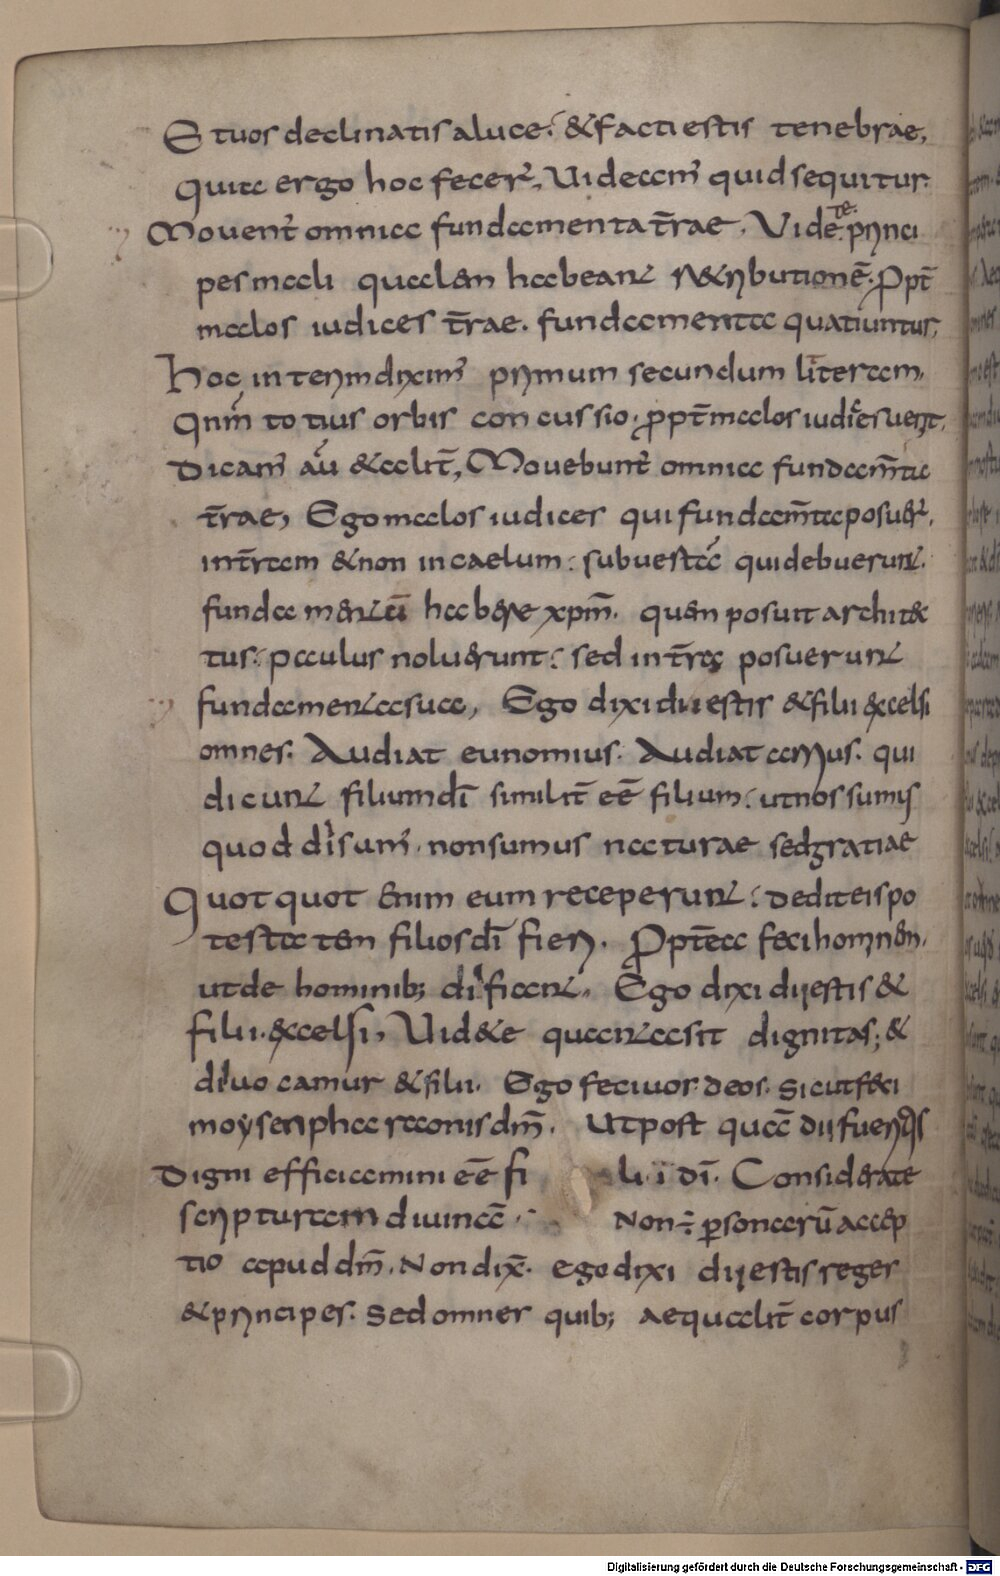 Stuos declinatis a luce. & facti estis tenebrae,
Quia ergo hoc fecer̄, Uideam̄ quid sequitur.
Mouent̄ omnia fundamenta t̄rae. Videte princi
pes mali qualem habeant retributionē. Ppt̄
malos iudices t̄rae. fundamenta quatiuntur,
Hoc interim diximȝ primum secundum litteram,
Qnm̄ totius orbis concussio. ppt̄ malos iudices uenit,
Dicam̄ aū & alit̄, Mouebunt̄ omnia fundam̄ta
t̄rae, Ego malos iudices qui fundam̄ta posuer̄,
in t̄ram & non in caelum: subuestā qui debuerunt.
fundamentū habere xpm̄. quem posuit architec
tus. paulus noluerunt: sed in t̄ra posuerunt
fundamenta sua, Ego dixi dii estis & filii excelsi
omnes. Audiat eunomius. Audiat arrius. qui
dicunt filium dī similit̄ eē filium: ut nos sumus
quod dii sum̄. non sumus naturae sed gratiae
Quotquot enim eum receperunt: dedit eis po
testatem filios dī fieri. Ppt̄ea feci hominem,
ut de hominib; dii fiant. Ego dixi dii estis &
filii. excelsi, Uidete quanta sit dignitas; &
dii uocamur & filii. Ego feci uos deos. sicut feci
moysen pharaonis dm̄. Ut post quā dii fueritis
Digni efficiamini eē fi li. i dī. Considerate
scripturam diuinā. Non ÷ psonarū accep
tio apud dm̄. Non dix̄. ego dixi dii estis reges
& principes. sed omnes quib; aequalit̄ corpus
Digitalisierung gefördert durch die Deutsche Forschungsgemeinschaft - DFG